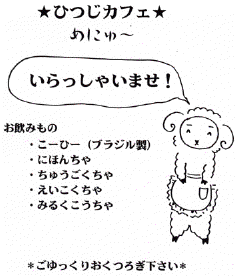 ★ひつじカフェ★
めにゅ〜
いらっしゃいませ！
お飲みもの
・こーひー（ブラジル製）
・にほんちゃ
・ちゅうごくちゃ
・えいこくちゃ
・みるくこうちゃ
＊ごゆっくりおくつろぎ下さい＊